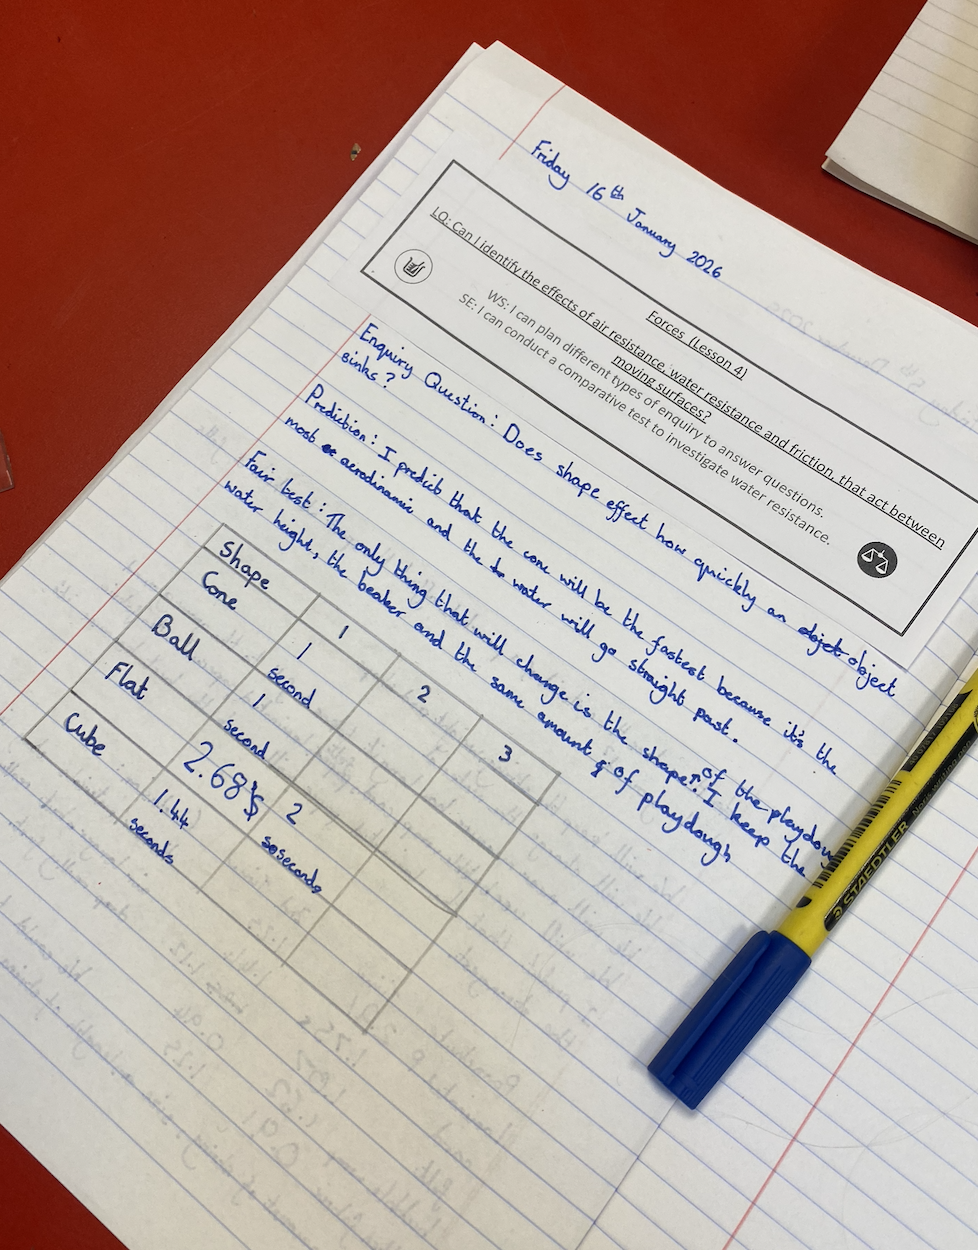 Friday 16th January 2026
Forces (Lesson 4)
LQ: Can I identify the effects of air resistance, water resistance and friction, that act between
moving surfaces?
WS: I can plan different types of enquiry to answer questions.
SE: I can conduct a comparative test to investigate water resistance.
Enquiry Question: Does shape effect how quickly an object object
sinks?
Prediction: I predict that the cone will be the fastest because it's the
most aerodinamic and the water will go straight past.
Fair test: The only thing that will change is the shape of the playdou
water height, the beaker and the same amount of playdough I keep the
Shape 1 2 3
Cone 1 second
Ball 1 second
Flat 2.68 s 2 soseconds
Cube 1.44 seconds
STAEDTLER